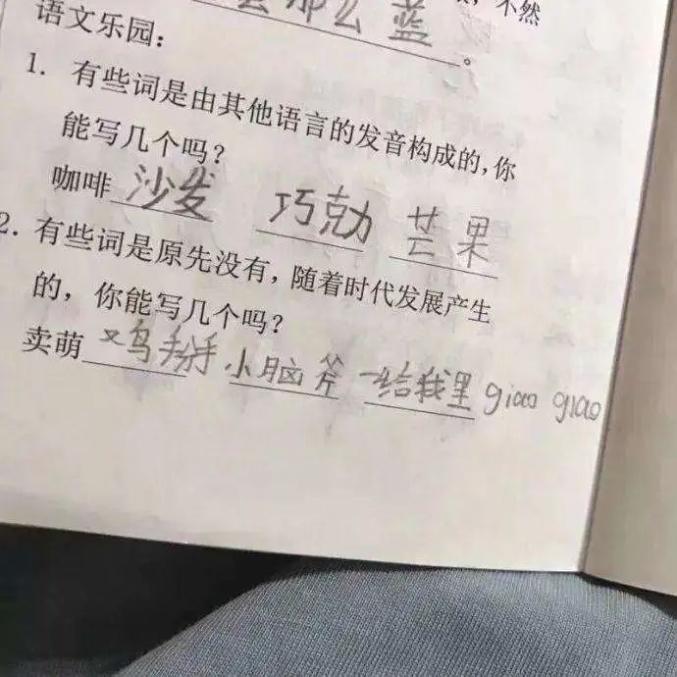 么那么蓝。，不然
语文乐园：
1. 有些词是由其他语言的发音构成的，你
能写几个吗？
咖啡 沙发 巧克力 芒果
2. 有些词是原先没有，随着时代发展产生
的，你能写几个吗？
卖萌 又鸟掰 小脑斧 一给我里 giao giao